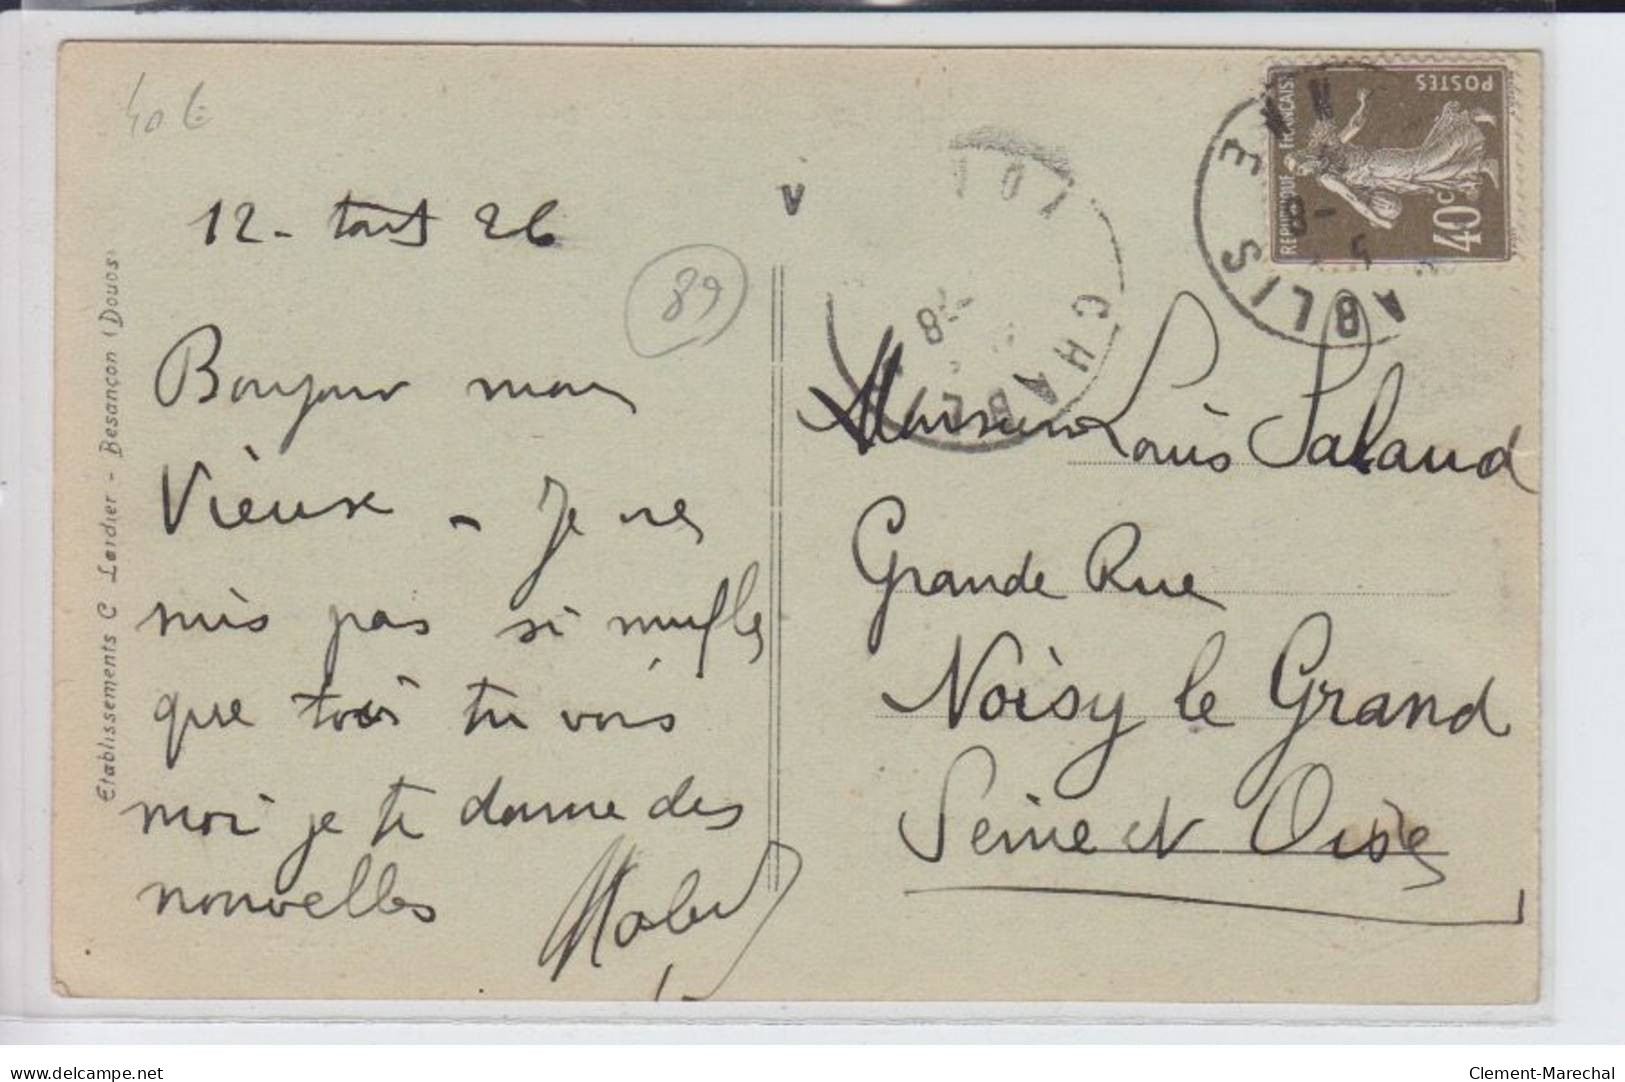 40 €
12 - tout 26
89
Bonjour mon
Vieux - Je ne
suis pas si mufles
que toi tu vois
moi je te donne des
nouvelles
Etablissements C Lardier - Besançon (Doubs)
V
CHABLIS
8
CHABLIS
YONNE
8 - 5
POSTES
REPUBLIQUE FRANÇAISE
40c
Monsieur Louis Salaud
Grande Rue
Noisy le Grand
Seine et Oise
Clement-Marechal
delcampe.net